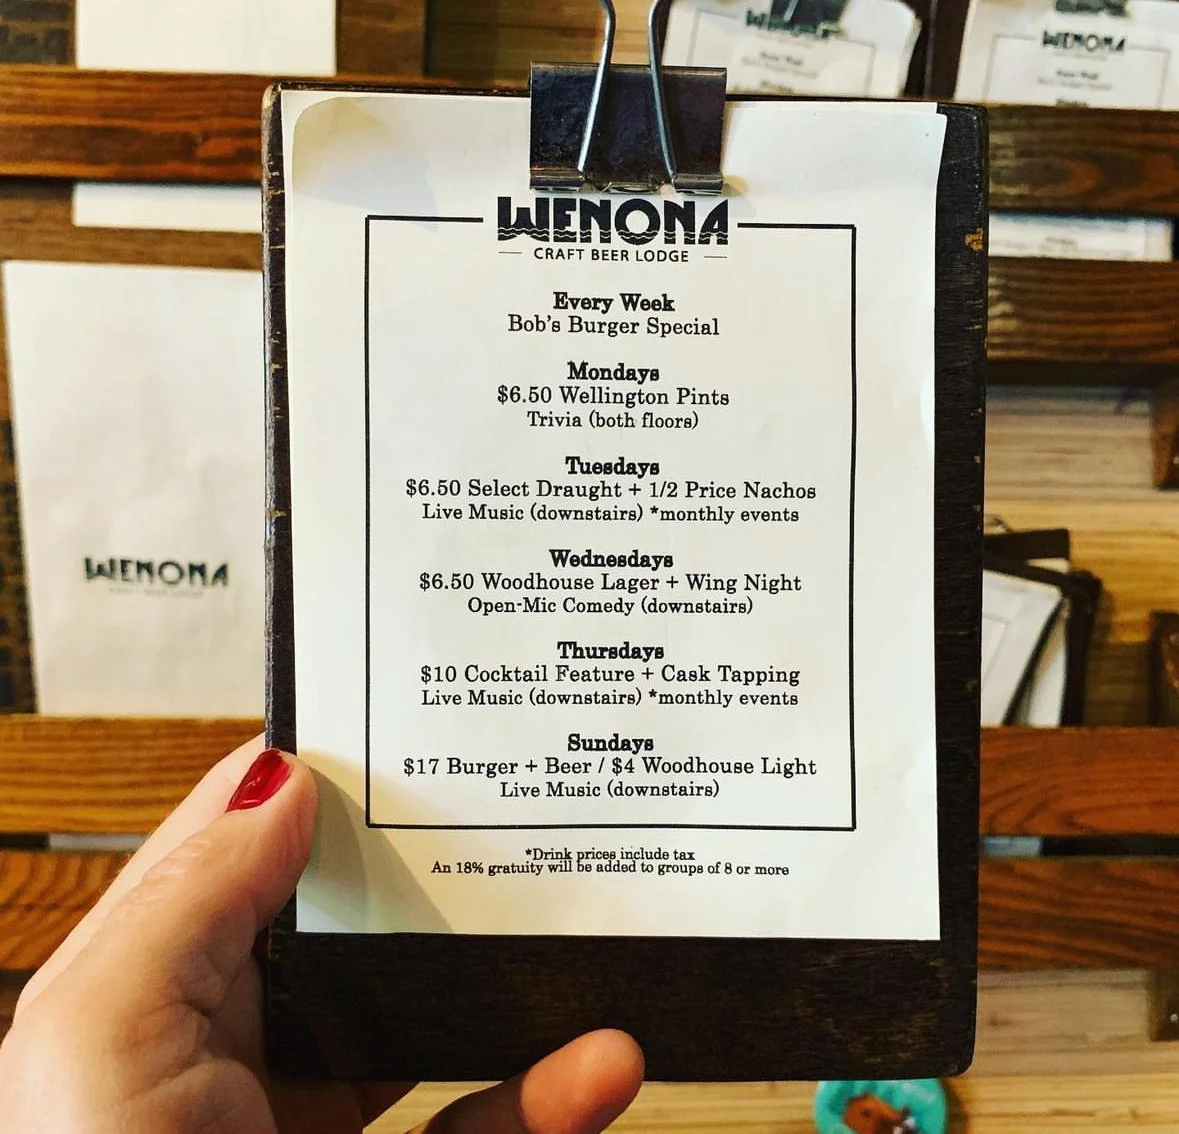 WENONA
CRAFT BEER LODGE
Every Week
Bob's Burger Special
Mondays
$6.50 Wellington Pints
Trivia (both floors)
Tuesdays
$6.50 Select Draught + 1/2 Price Nachos
Live Music (downstairs) *monthly events
Wednesdays
$6.50 Woodhouse Lager + Wing Night
Open-Mic Comedy (downstairs)
Thursdays
$10 Cocktail Feature + Cask Tapping
Live Music (downstairs) *monthly events
Sundays
$17 Burger + Beer / $4 Woodhouse Light
Live Music (downstairs)
*Drink prices include tax
An 18% gratuity will be added to groups of 8 or more
WENONA
CRAFT BEER LODGE
WENONA
WENONA